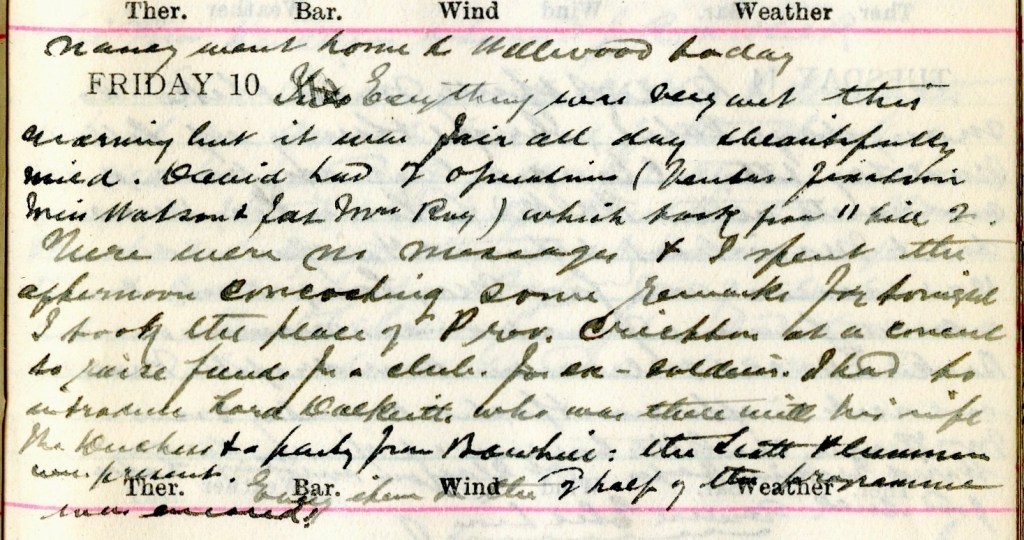 Ther. Bar. Wind Weather
Nancy went home to Wellwood today
FRIDAY 10 Everything was very wet this
morning but it was fair all day & beautifully
mild. David had 7 operations (
Miss Watson & Mrs Roy) which took from 11 till 2.
There were no messages & I spent the
afternoon concocting some remarks for tonight
I took the place of Prov. Crichton at a concert
to raise funds for a club for ex-soldiers. I had to
introduce Lord Dalkeith who was there with his wife
the Duchess & a party from Bowhill: the Scott Plummers
were present. Every item in the half of the programme
Ther. Bar. Wind Weather
was encored!